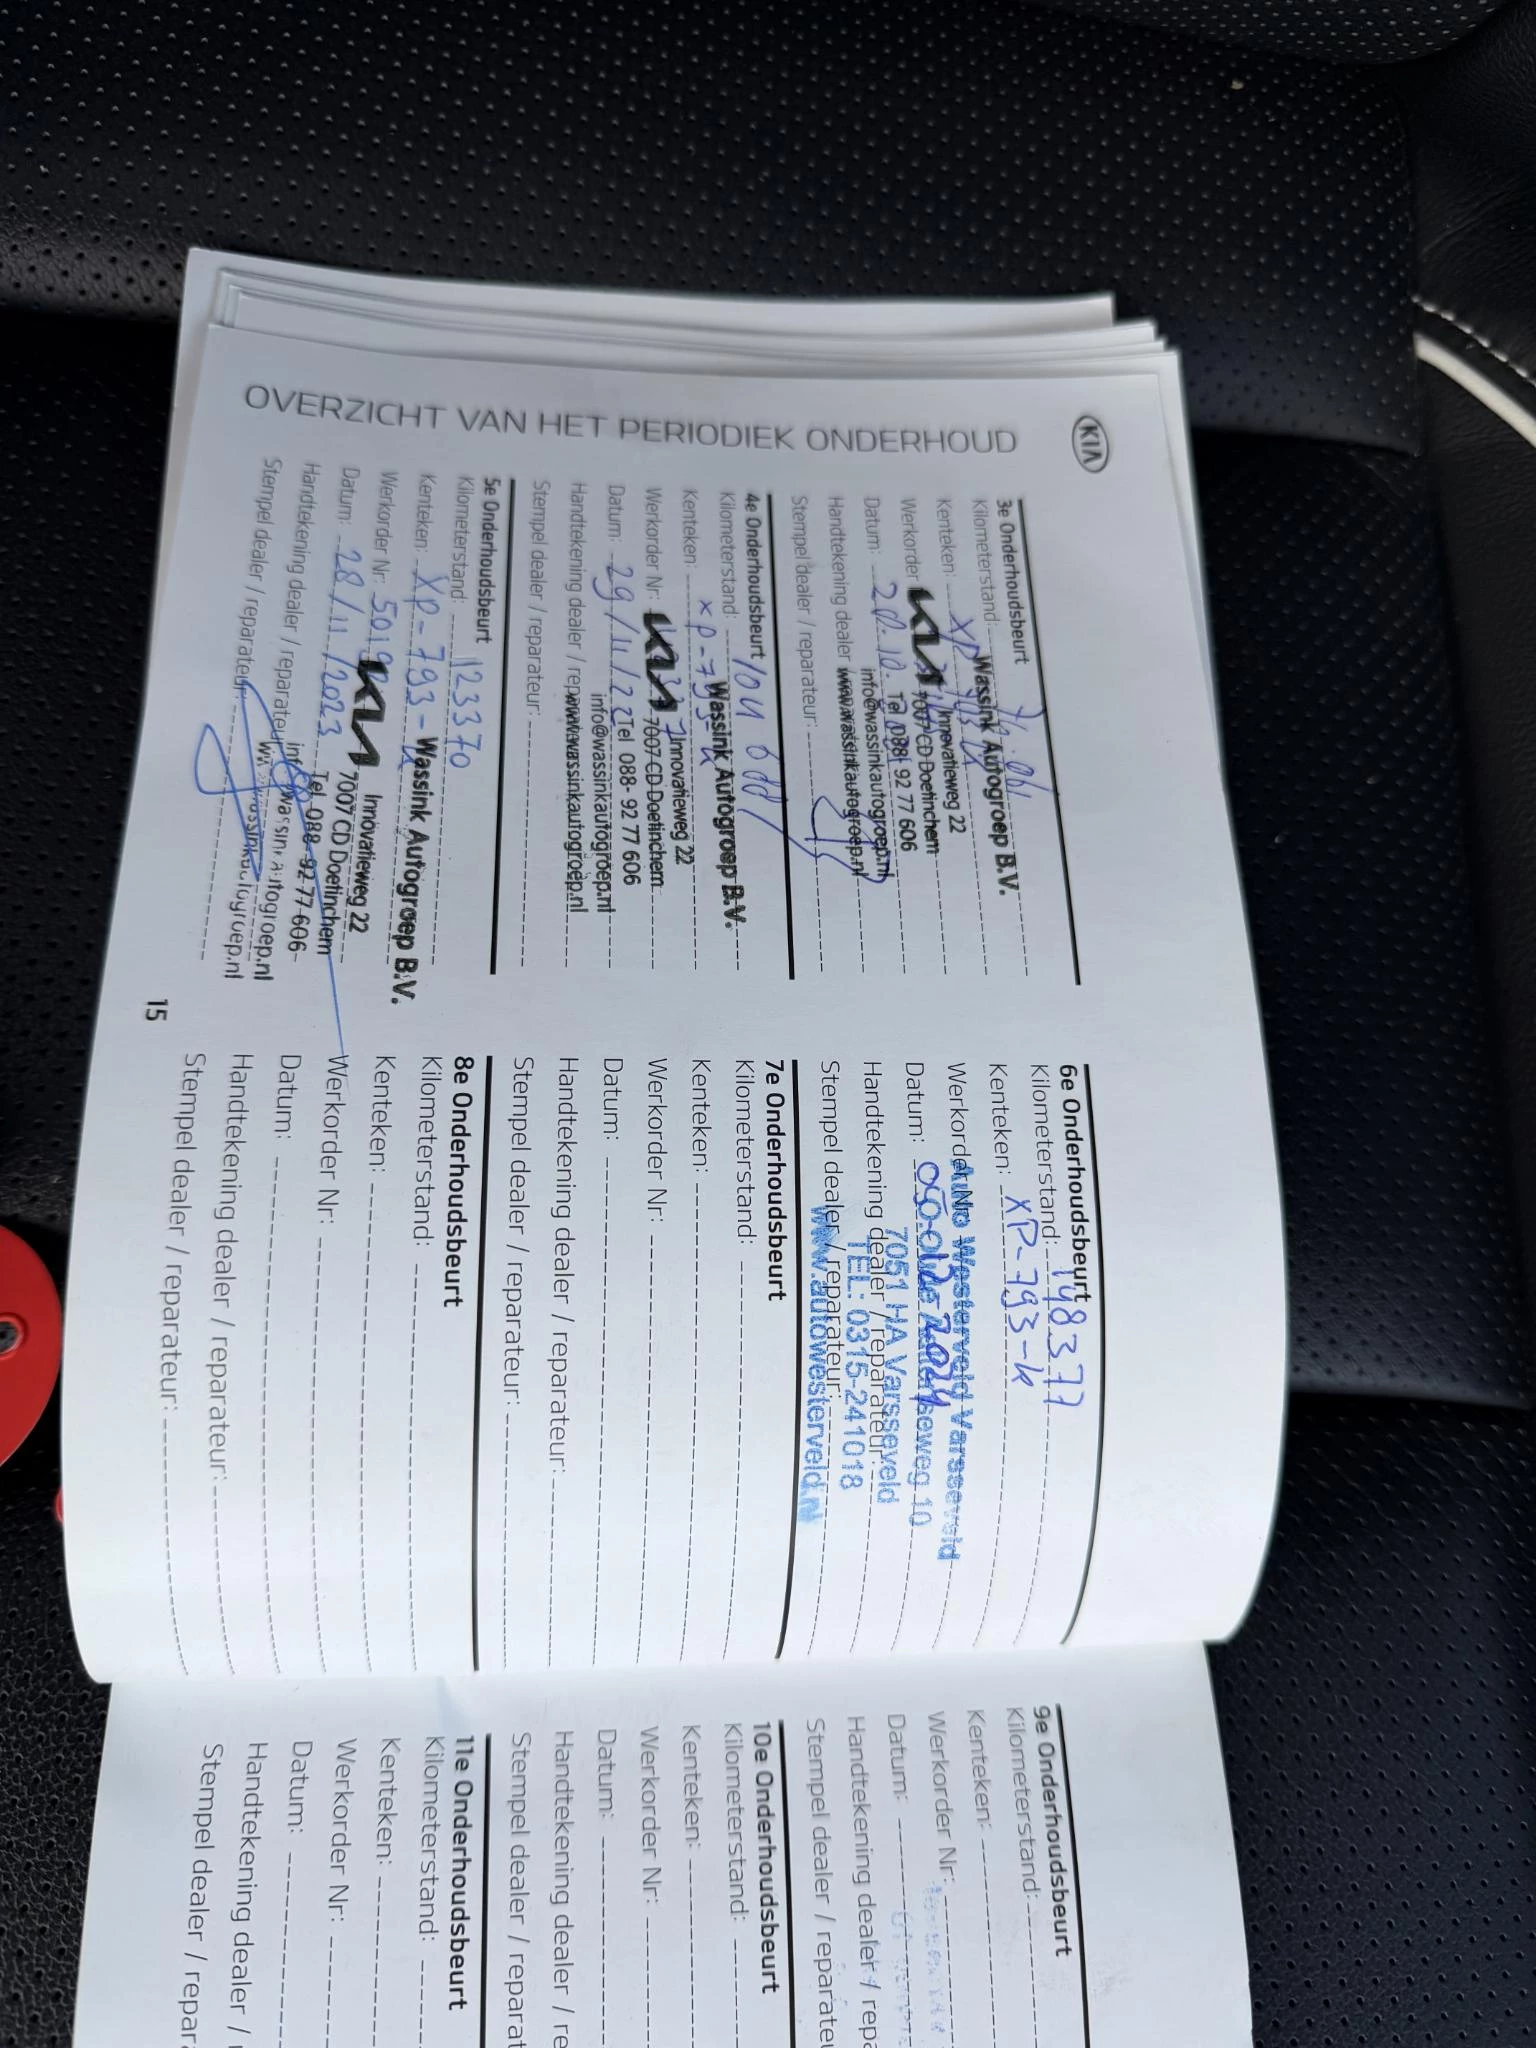 KIA
OVERZICHT VAN HET PERIODIEK ONDERHOUD
3e Onderhoudsbeurt
Kilometerstand:
Kenteken: XP
Wassink Autogroep B.V.
Werkorder
Innovatieweg 22
KIA 7007 CD Doetinchem
Datum:
Tel 088- 92 77 606
info@wassinkautogroep.nl
Handtekening dealer
www.wassinkautogroep.nl
Stempel dealer / reparateur:
4e Onderhoudsbeurt
Kilometerstand:
Kenteken: XP-793-K
Wassink Autogroep B.V.
Werkorder Nr:
Innovatieweg 22
KIA 7007 CD Doetinchem
Datum: 29/11/22
Tel 088- 92 77 606
info@wassinkautogroep.nl
Handtekening dealer / reparateur:
www.wassinkautogroep.nl
Stempel dealer / reparateur:
5e Onderhoudsbeurt
Kilometerstand: 123370
Kenteken: XP-793-K
Wassink Autogroep B.V.
Werkorder Nr: 5019
Innovatieweg 22
KIA 7007 CD Doetinchem
Datum: 28/11/2023
Tel 088- 92 77 606
Handtekening dealer / reparateur:
info@wassinkautogroep.nl
www.wassinkautogroep.nl
Stempel dealer / reparateur:
15
6e Onderhoudsbeurt
Kilometerstand: 148377
Kenteken: XP-793-K
Werkorder Nr:
Auto Westerveld Varsseveld
Datum:
7051 HA Varsseveld
Handtekening dealer / reparateur:
TEL: 0315-241018
Stempel dealer / reparateur:
www.autowesterveld.nl
7e Onderhoudsbeurt
Kilometerstand:
Kenteken:
Werkorder Nr:
Datum:
Handtekening dealer / reparateur:
Stempel dealer / reparateur:
8e Onderhoudsbeurt
Kilometerstand:
Kenteken:
Werkorder Nr:
Datum:
Handtekening dealer / reparateur:
Stempel dealer / reparateur:
9e Onderhoudsbeurt
Kilometerstand:
Kenteken:
Werkorder Nr:
Datum:
Handtekening dealer / repa
Stempel dealer / reparateu
10e Onderhoudsbeurt
Kilometerstand:
Kenteken:
Werkorder Nr:
Datum:
Handtekening dealer / re
Stempel dealer / reparat
11e Onderhoudsbeurt
Kilometerstand:
Kenteken:
Werkorder Nr:
Datum:
Handtekening dealer /
Stempel dealer / repar